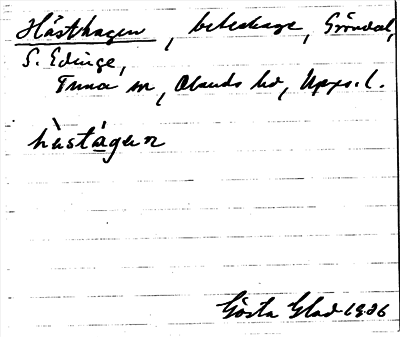 Hästhagen, beteshage, Gröndal,
S. Edinge,
Tuna sn, Olands hd, Upps. l.
hὰstágen
Gösta Glad 1936